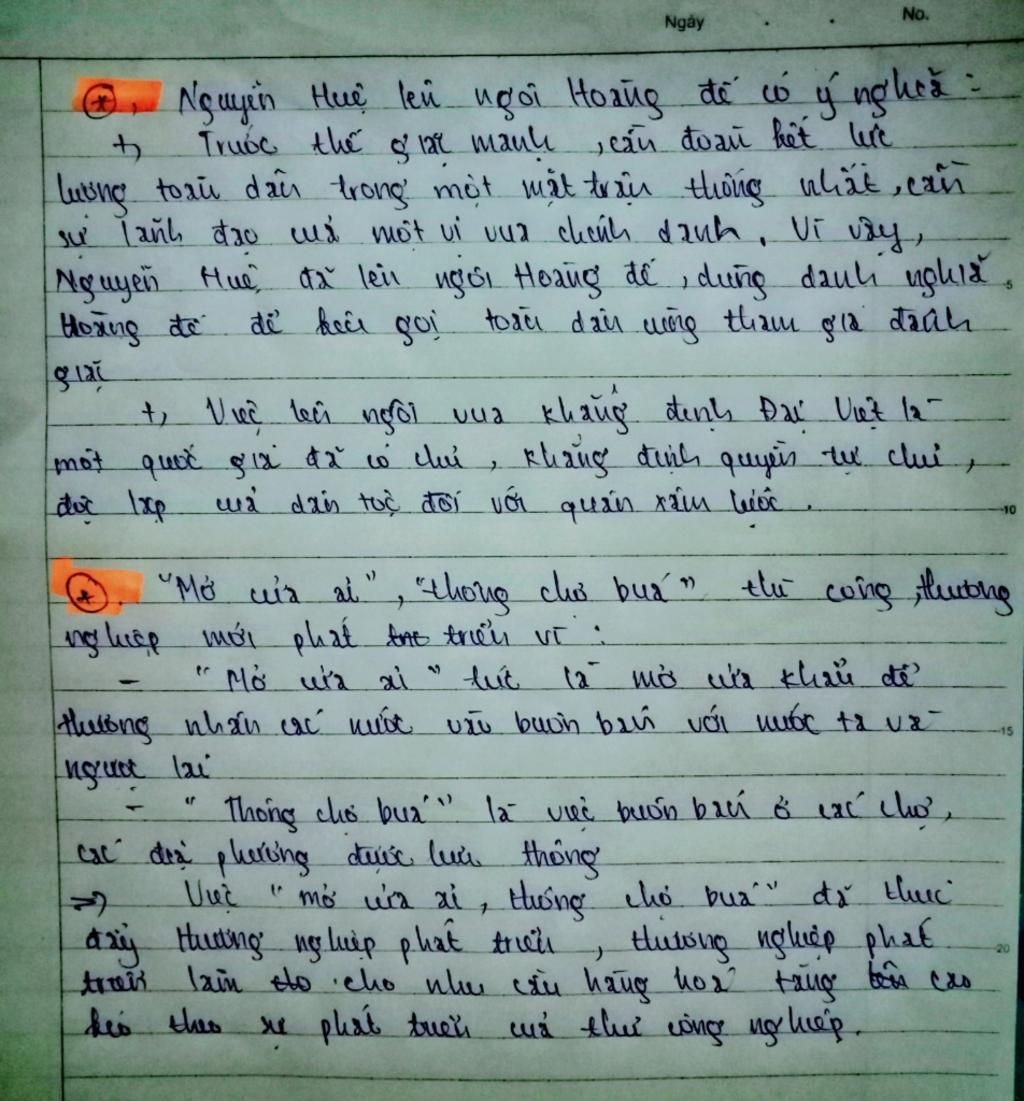 Ngày . . No.
*, Nguyễn Huệ lên ngôi Hoàng đế có ý nghĩa:
+, Trước thế giặc mạnh, cần đoàn kết lực
lượng toàn dân trong một mặt trận thống nhất, cần
sự lãnh đạo của một vị vua chính danh. Vì vậy,
Nguyễn Huệ đã lên ngôi Hoàng đế, dùng danh nghĩa 5
Hoàng đế để kêu gọi toàn dân cùng tham gia đánh
giặc
+, Việc lên ngôi vua khẳng định Đại Việt là
một quốc gia đã có chủ, khẳng định quyền tự chủ,
độc lập của dân tộc đối với quân xâm lược. 10
*. "Mở cửa ải", "thông chợ búa" thủ công, thương
nghiệp mới phát triển vì:
- "Mở cửa ải" tức là mở cửa khẩu để
thương nhân các nước vào buôn bán với nước ta và 15
ngược lại
- "Thông chợ búa" là việc buôn bán ở các chợ,
các địa phương được lưu thông
=> Việc "mở cửa ải, thông chợ búa" đã thúc
đẩy thương nghiệp phát triển, thương nghiệp phát 20
triển làm cho nhu cầu hàng hoá tăng cao
kéo theo sự phát triển của thủ công nghiệp.